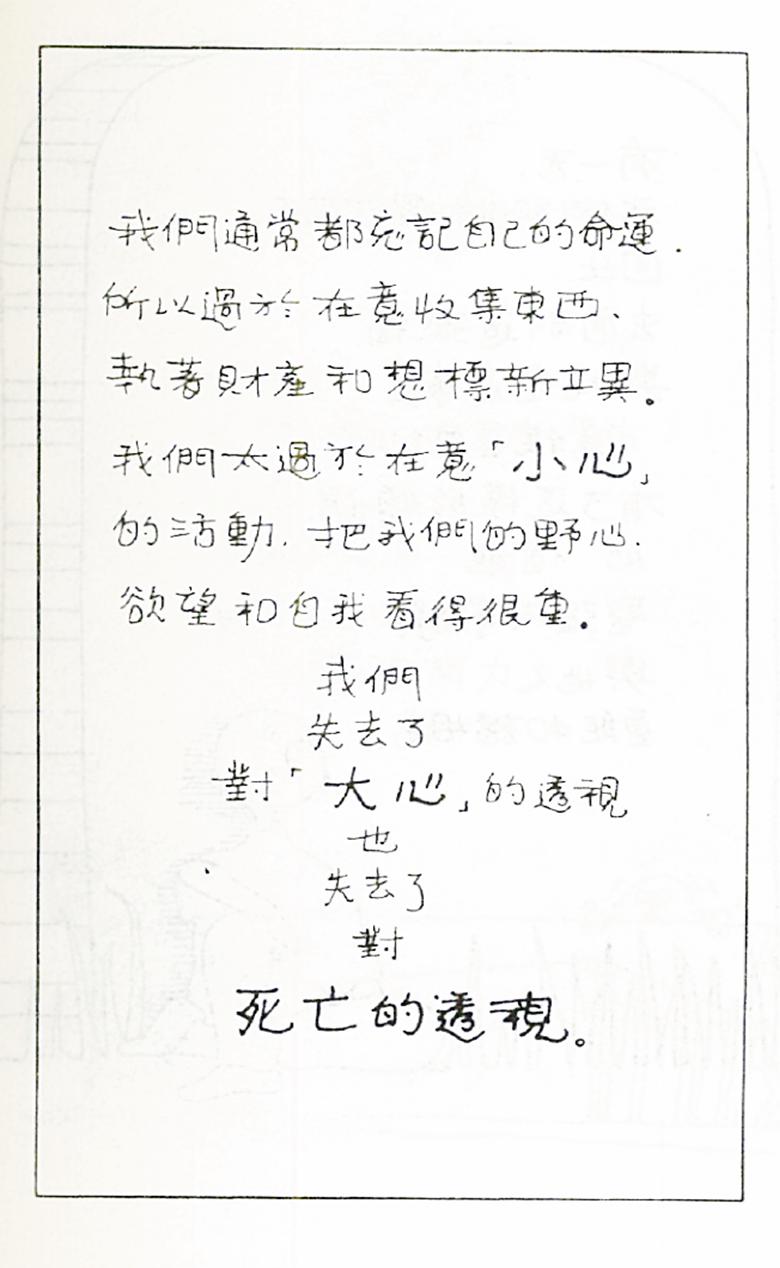 我們通常都忘記自己的命運.
所以過於在意收集東西、
執著財產和想標新立異。
我們太過於在意「小心」
的活動.把我們的野心.
欲望和自我看得很重。
我們
失去了
對「大心」的透視
也
失去了
對
死亡的透視。